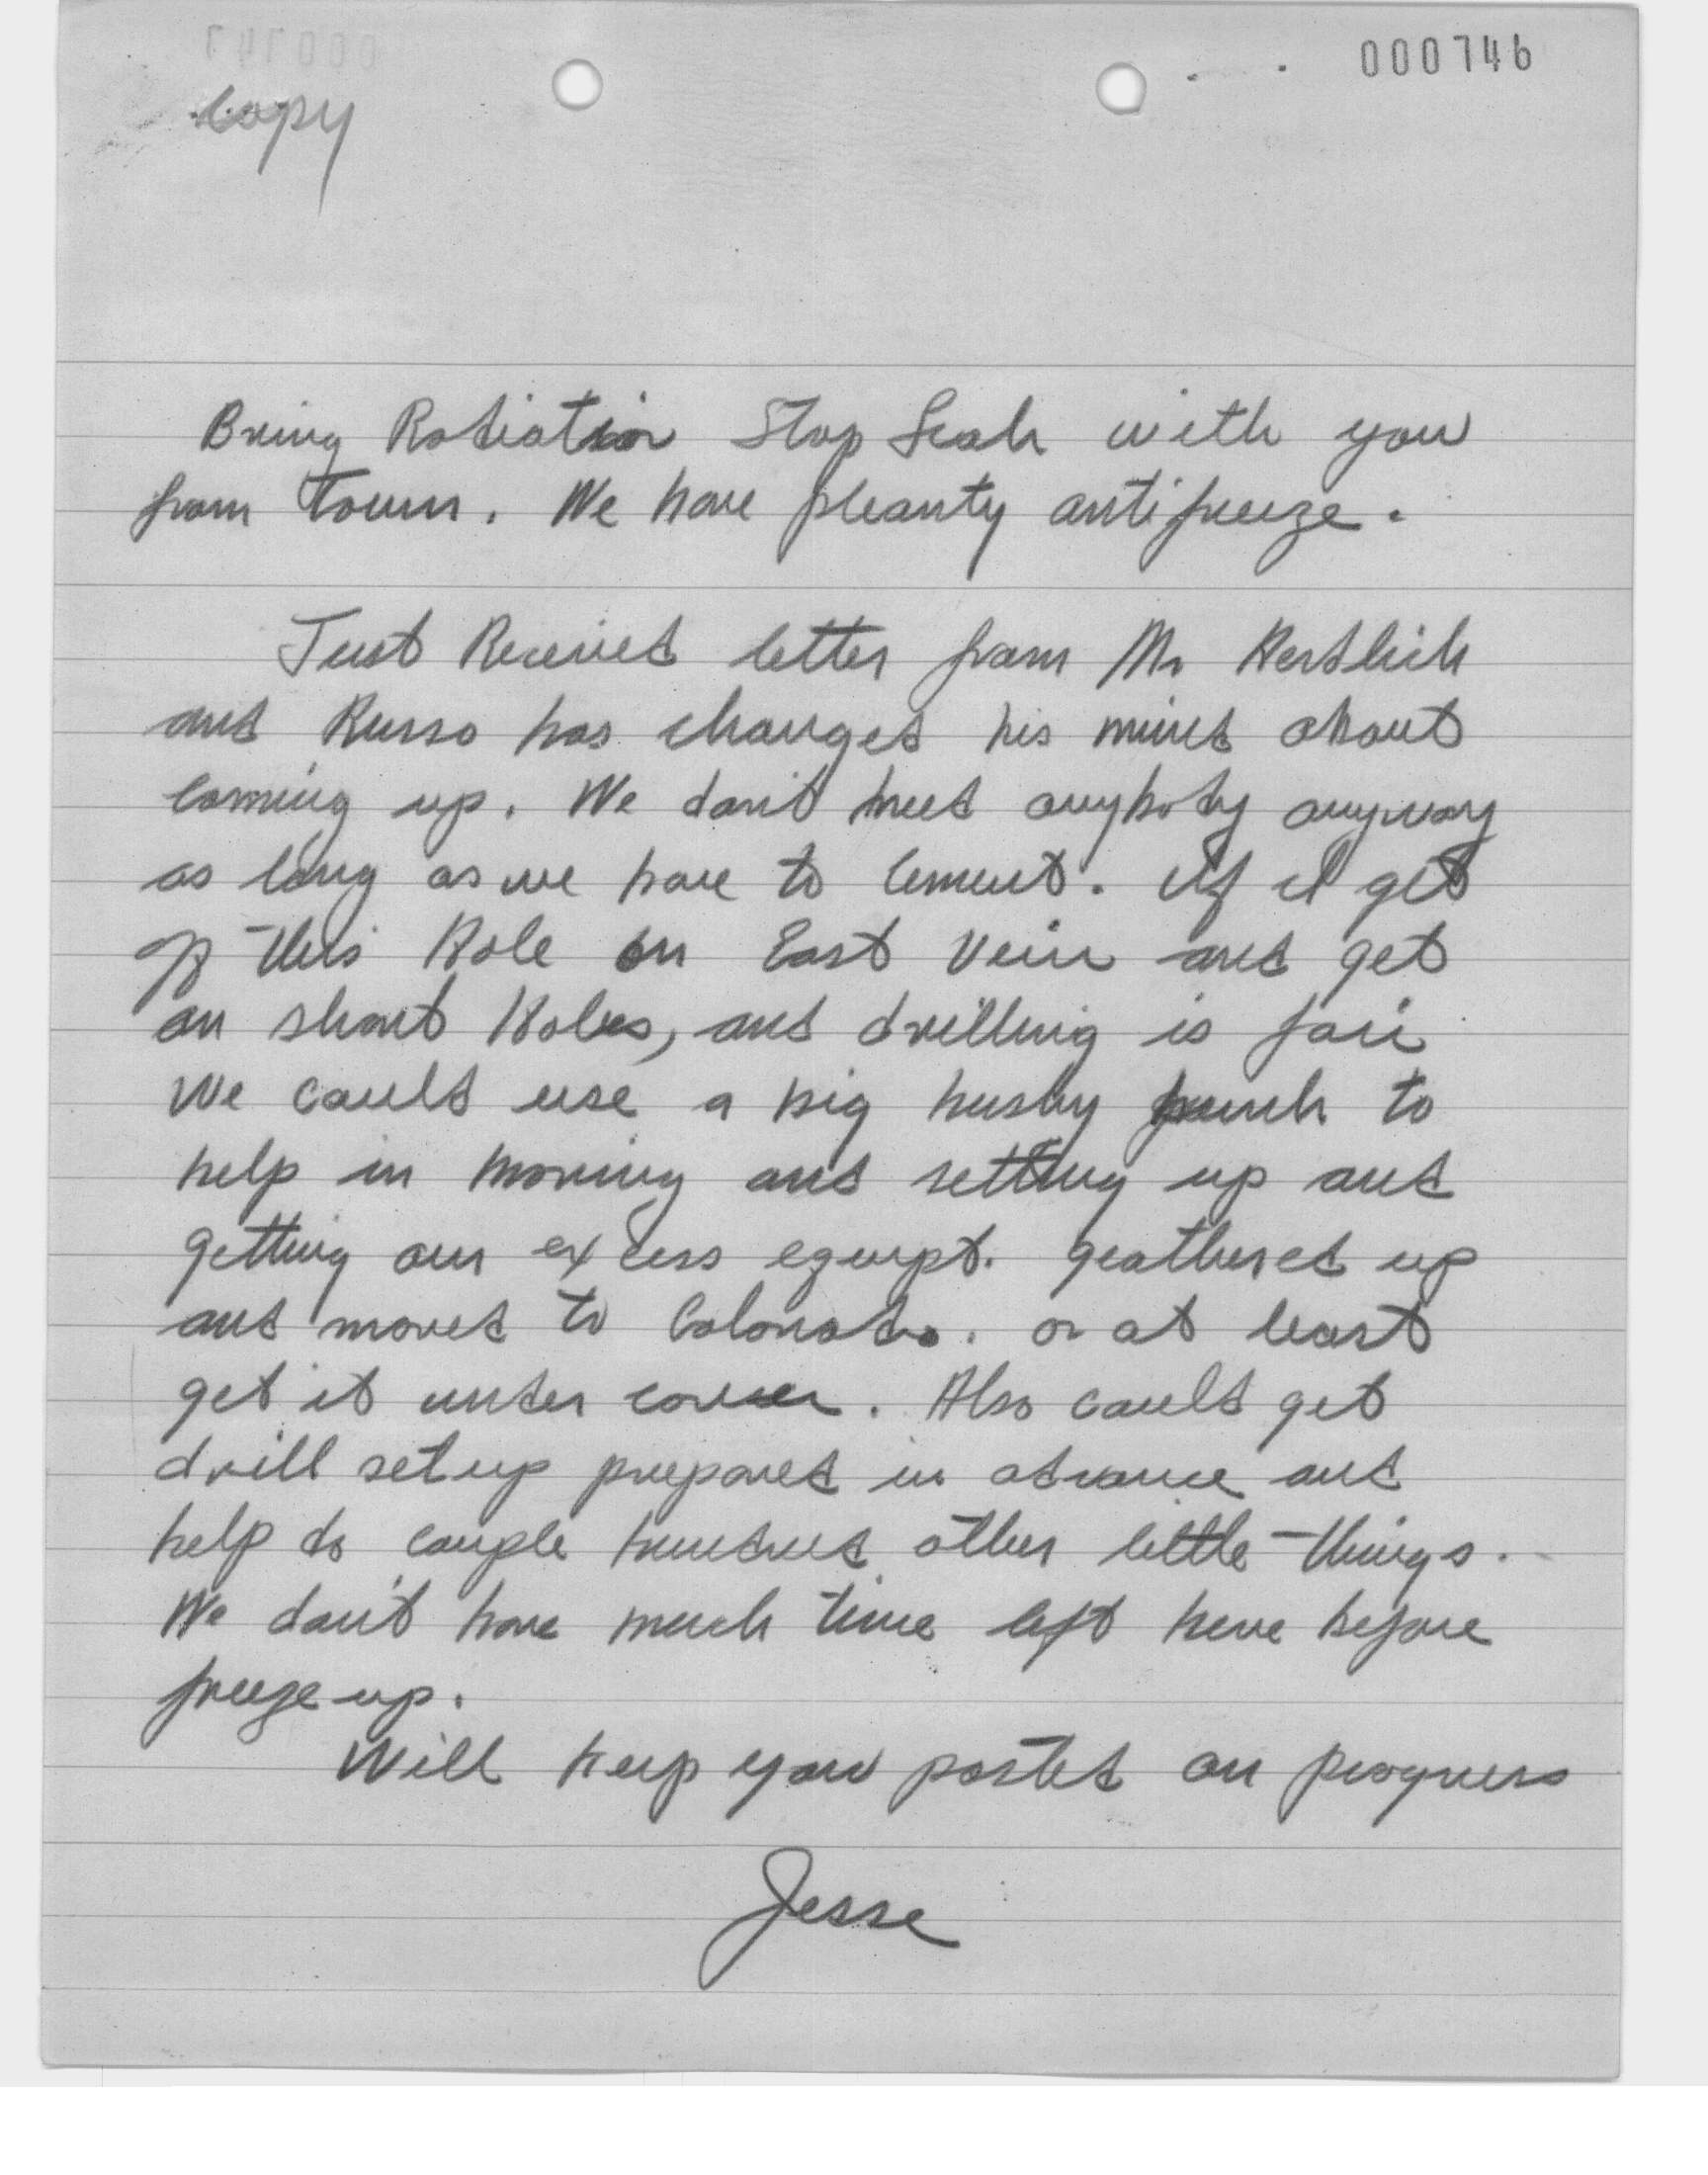 000746
Copy
Bring Radiator Stop Leak with you
from Town. We have pleanty antifreeze.
Just Received letter from Mr
and Russo has changed his mind about
coming up. We don't need anybody anyway
as long as we have to cement. If I get
off this Hole on East Vein and get
on short Holes, and drilling is fair
We could use a big husky punch to
help in moving and setting up and
getting our excess equipt. geathered up
and moved to Colorado. or at least
get it under cover. Also could get
drill setup prepared in advance and
help do couple hundred other little things.
We don't have much time left here before
freeze up.
Will keep you posted on progress
Jesse